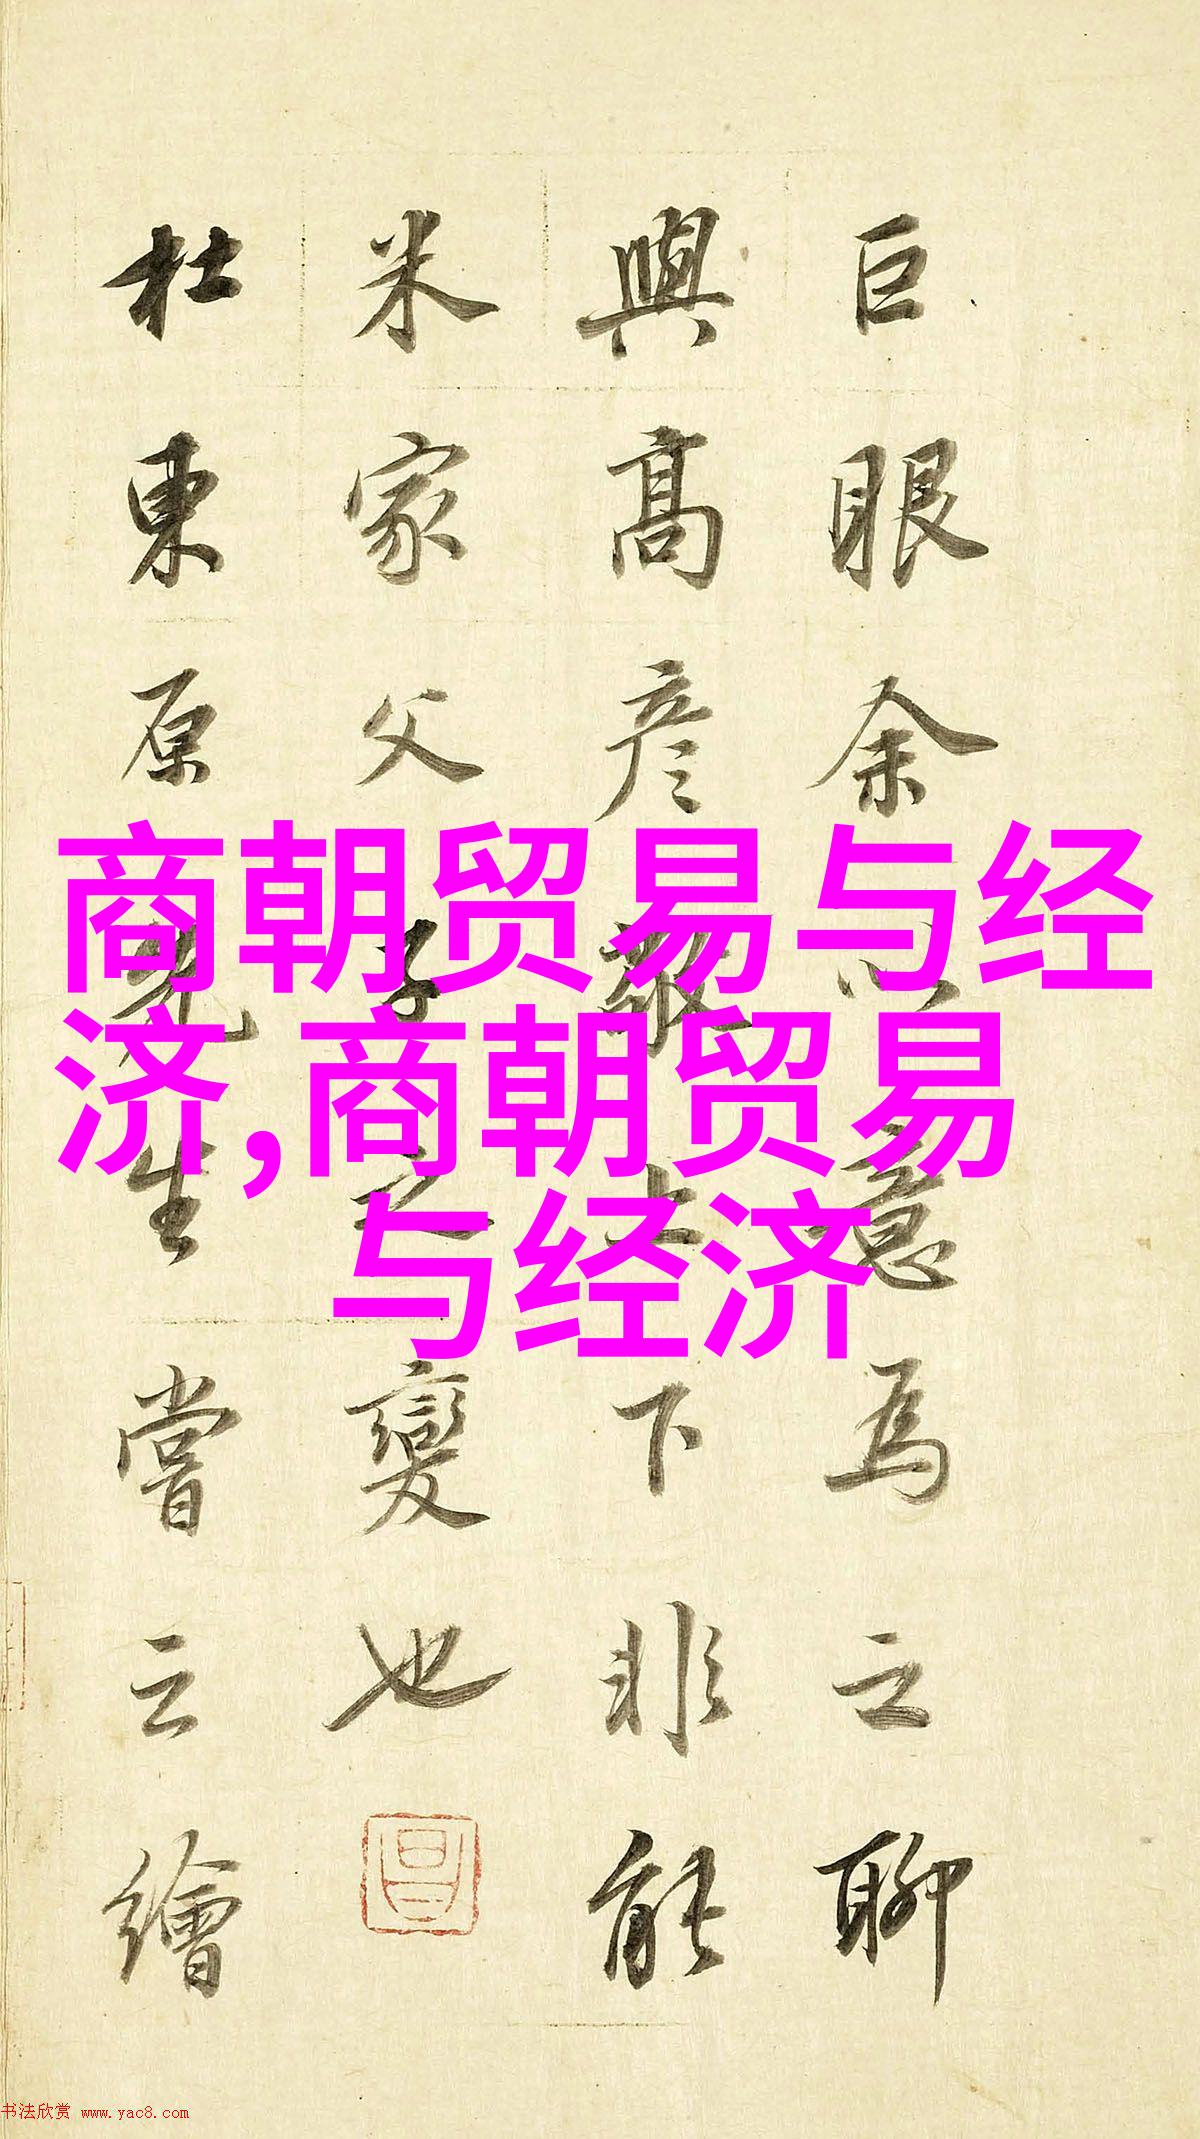 巨眼余意為之聊
與高彦敬上下非能
米家父子之變也
杜東原先生嘗云繪
商朝贸易与经
济,商朝贸易
与经济
书法欣赏 www.yac8.com